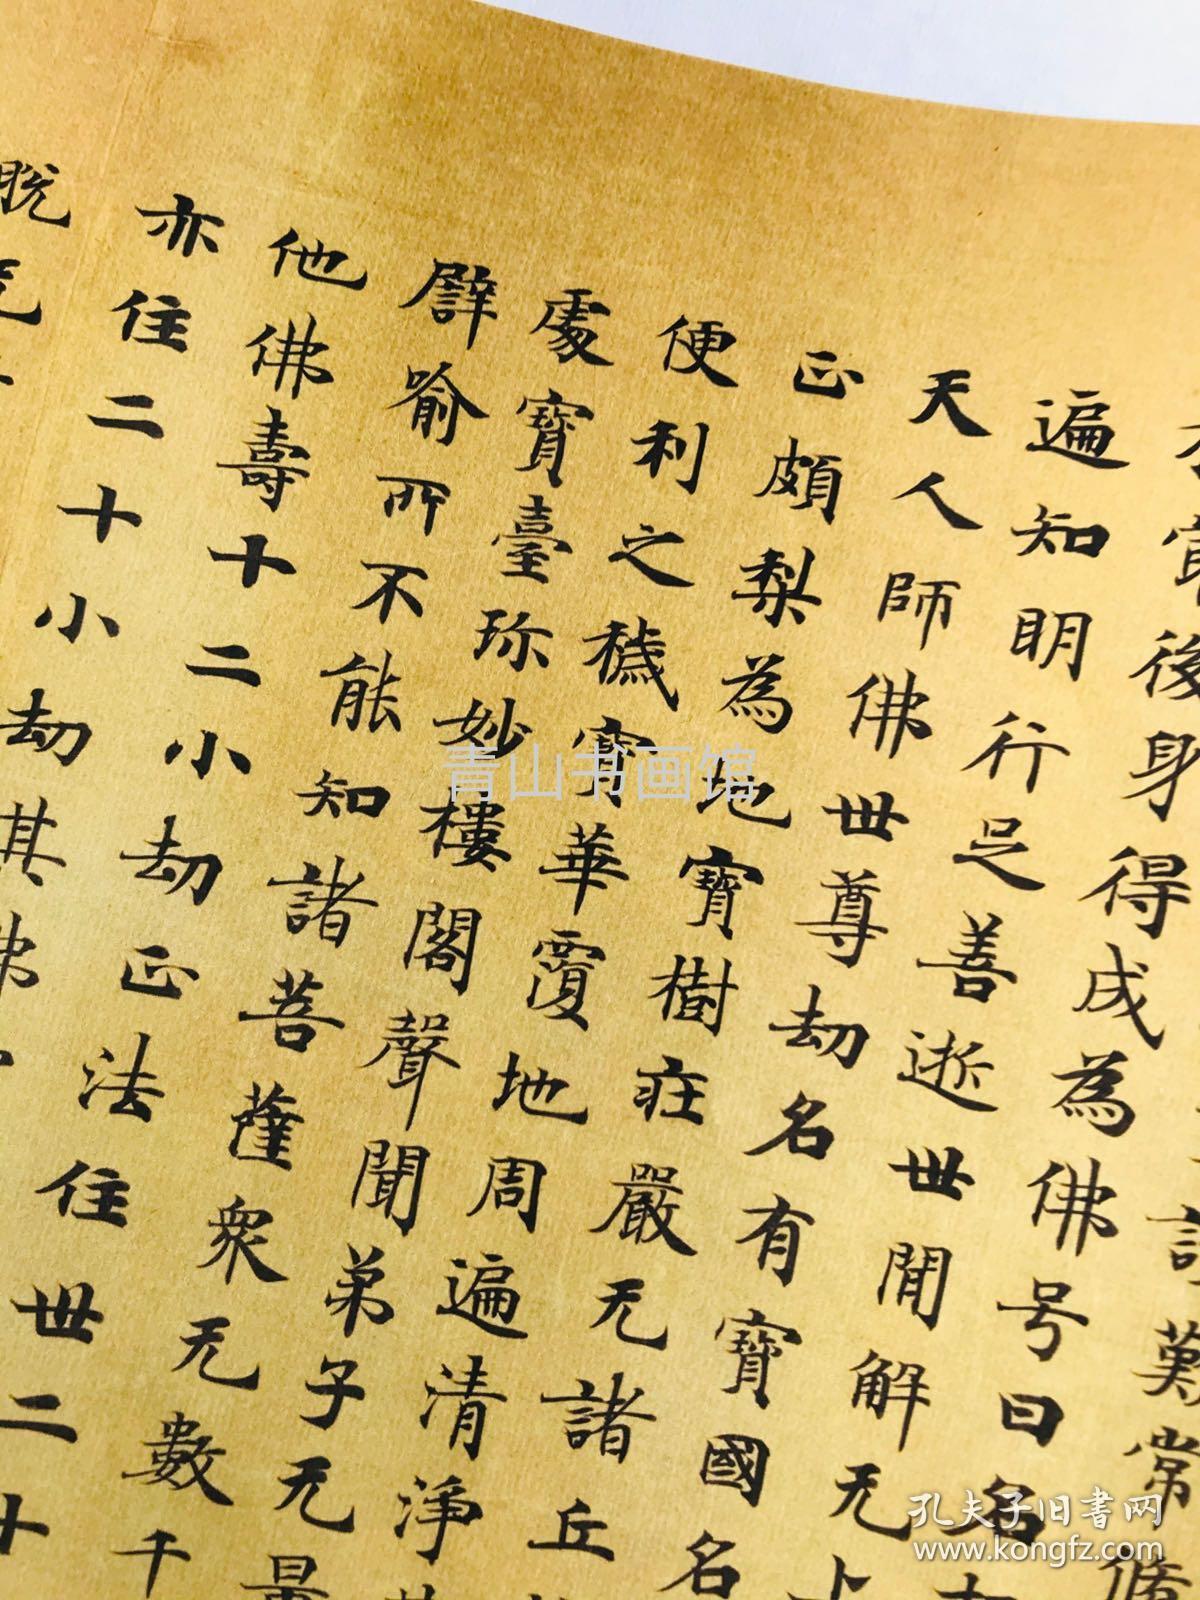 常脩
後身得成為佛号曰名
遍知明行足善逝世間解无上
天人師佛世尊劫名有寶國名
正頗梨為地寶樹莊嚴无諸丘
便利之穢寶華覆地周遍清淨
處寶臺珎妙樓閣聲聞弟子无量
譬喻所不能知諸菩薩衆无數千
他佛壽十二小劫正法住世二十
亦住二十小劫其佛
脫
青山书画馆
孔夫子旧书网
www.kongfz.com